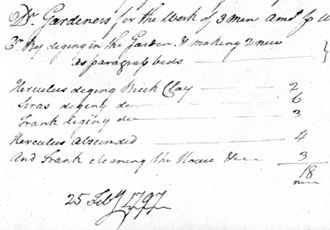 Dr. Gardeners for the Work of 3 men and
Dr. By deging in the Garden & making 2 new
asparagras beds
Herculus deging Brick Clay 2
Siras deging do 6
Frank deging do 3
Herculus absconded 4
And Frank cleaning the House &c 3
18
25 Feby 1797